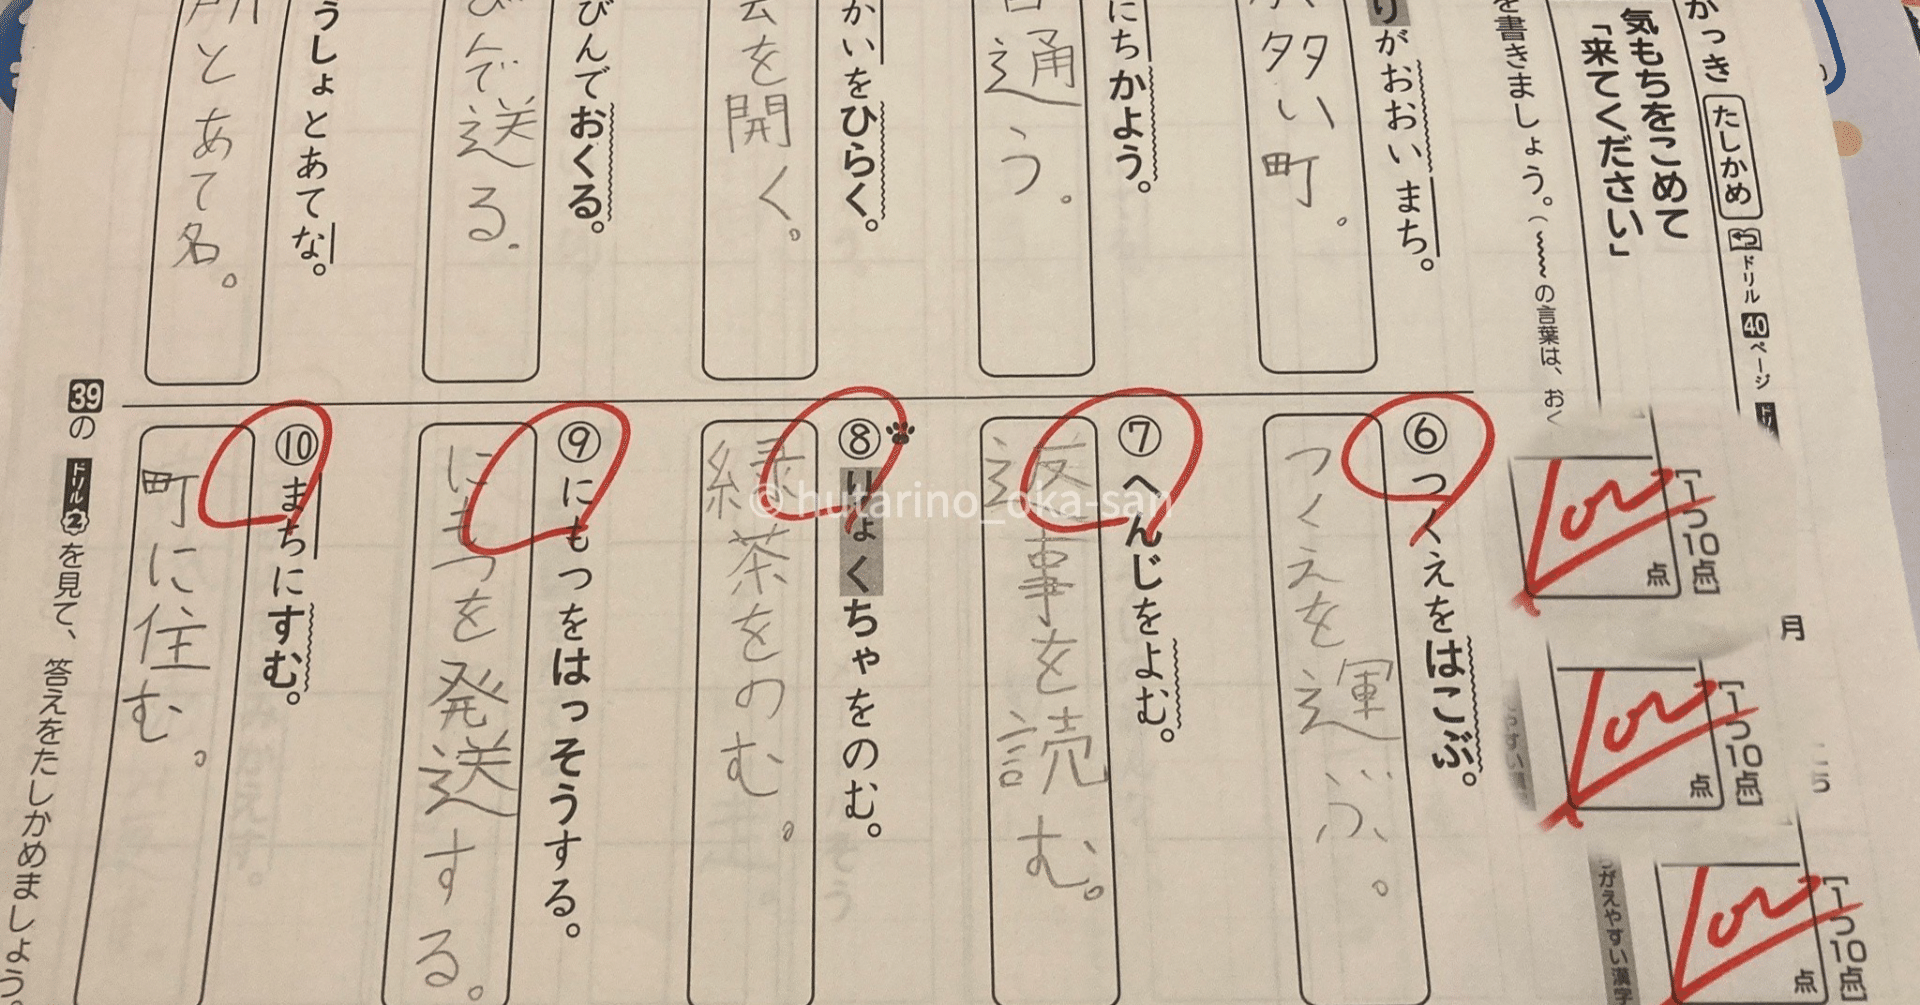 かっき
たしかめ
ドリル 40 ページ
気もちをこめて
「来てください」
を書きましょう。(〰〰の言葉は、おく
りがおおいまち。
多い町。
にちかよう。
通う。
かいをひらく。
を開く。
びんでおくる。
んで送る.
うしょとあてな。
所とあて名。
⑥ つくえをはこぶ。
つくえを運ぶ。
⑦ へんじをよむ。
返事を読む。
⑧ りょくちゃをのむ。
緑茶をのむ。
⑨ にもつをはっそうする。
にもつを発送する。
⑩ まちにすむ。
町に住む。
39の ドリル 2 を見て、答えをたしかめましょう。
[1つ10点]
100
点
月
[1つ10点]
100
点
[1つ10点
100
点
がえやすい漢字
© hutarino_oka-san